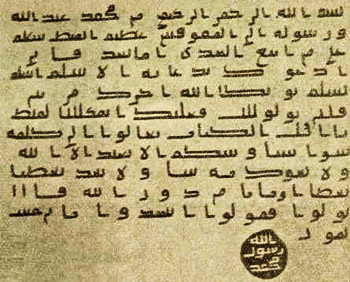 بسم الله الرحمن الرحيم من محمد عبد الله
ورسوله الى المقوقس عظيم القبط سلام
على من اتبع الهدى اما بعد فاني
ادعوك بدعاية الاسلام اسلم
تسلم يوتك الله اجرك مرتين
فان توليت فعليك اثم القبط
الكتاب تعالوا الى كلمة
سوا بيننا وبينكم الا نعبد الا الله
ولا نشرك به شيا ولا يتخذ بعضنا
بعضا اربابا من دون الله فان
تولوا فقولوا اشهدوا بانا مسل
مون
الله
رسول
محمد